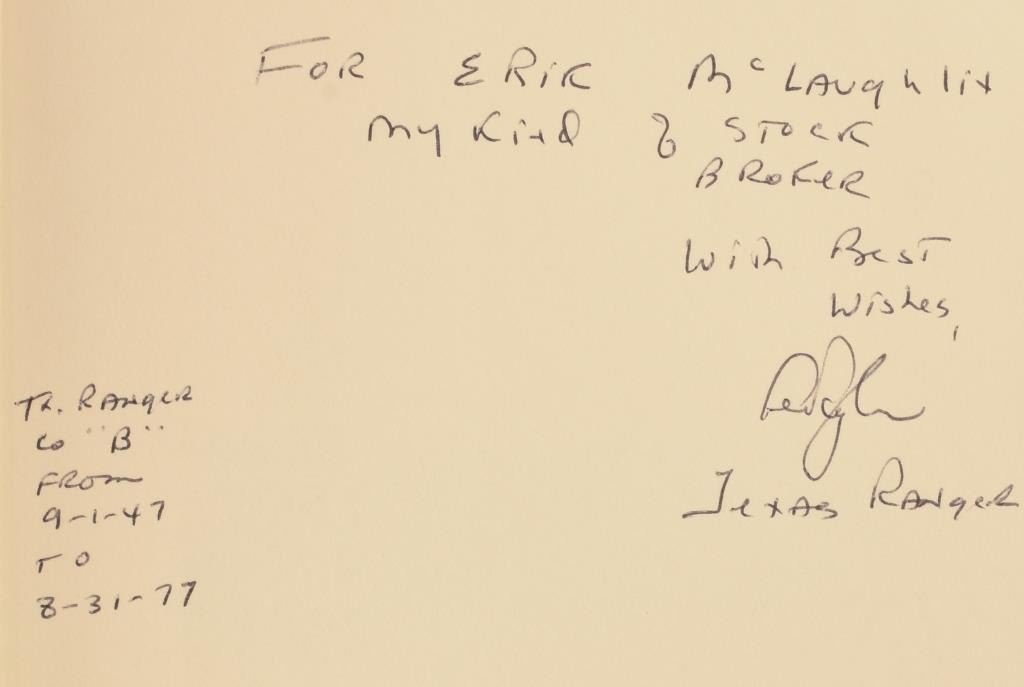 FOR ERIK McLAUGHLIN
My KiND of STOCK
BROKER
With BEST
Wishes,
Texas RANGER
Tx. RANGER
Co "B"
FROM
9-1-47
TO
8-31-77